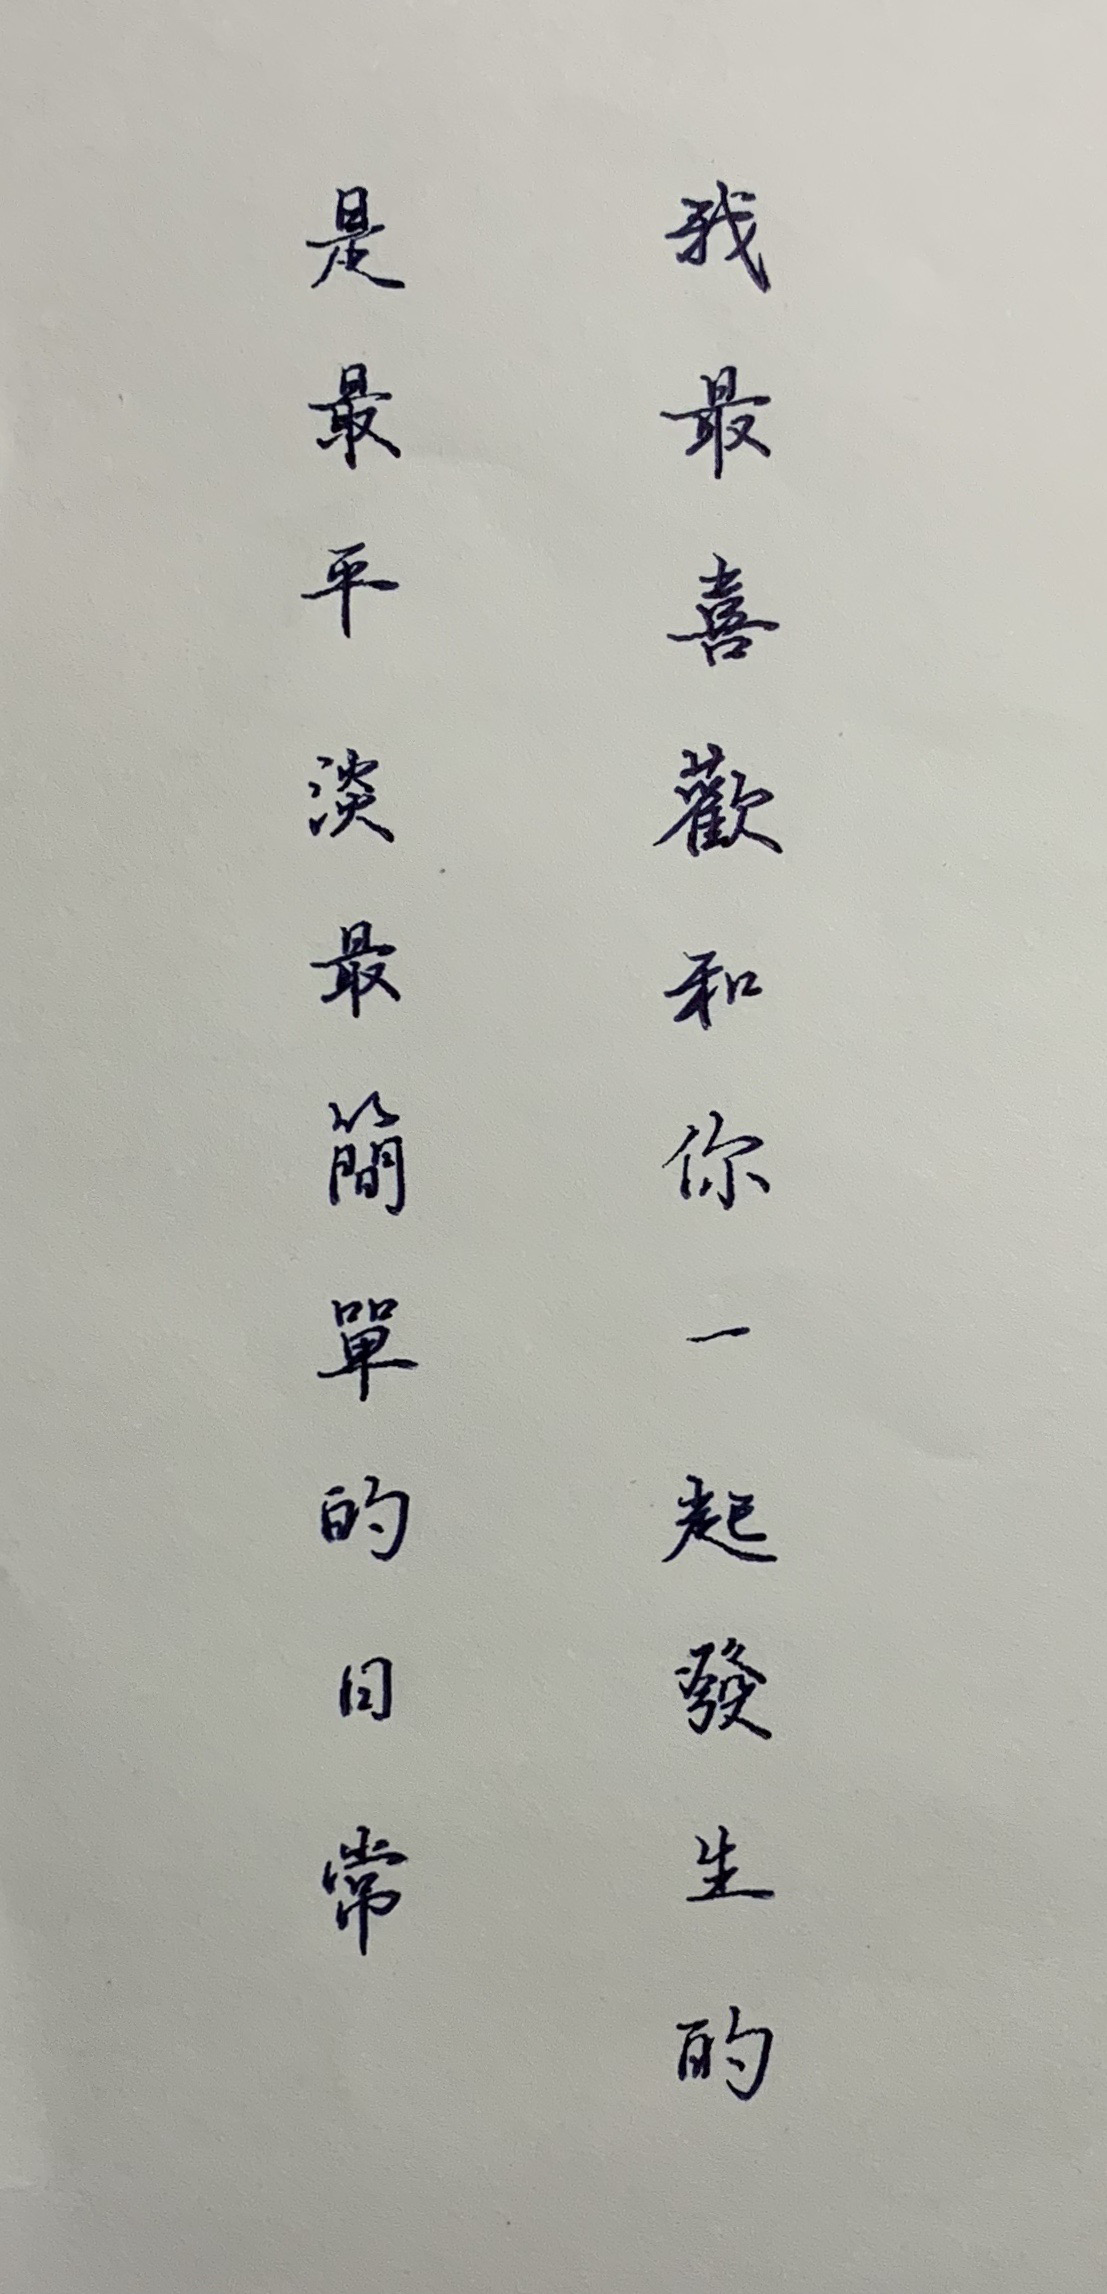 我最喜歡和你一起發生的
是最平淡最簡單的日常